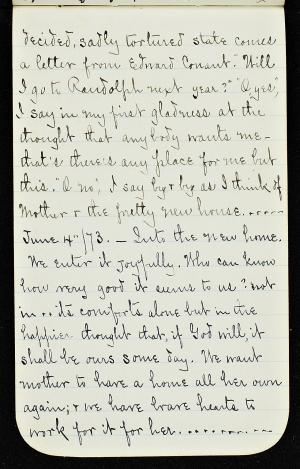 decided, sadly tortured state comes
a letter from Edward Conant. "Will
I go to Randolph next year?" "O, yes,"
I say in my first gladness at the
thought that anybody wants me -
that's there's any place for me but
this. "O no", I say by & by as I think of
Mother & the pretty new house. .....
June 4th /73. - Into the new home.
We enter it joyfully. Who can know
how very good it seems to us? not
in .. its comforts alone but in the
happier thought that, if God will, it
shall be ours some day. We want
mother to have a home all her own
again; & we have brave hearts to
work for it for her. .........